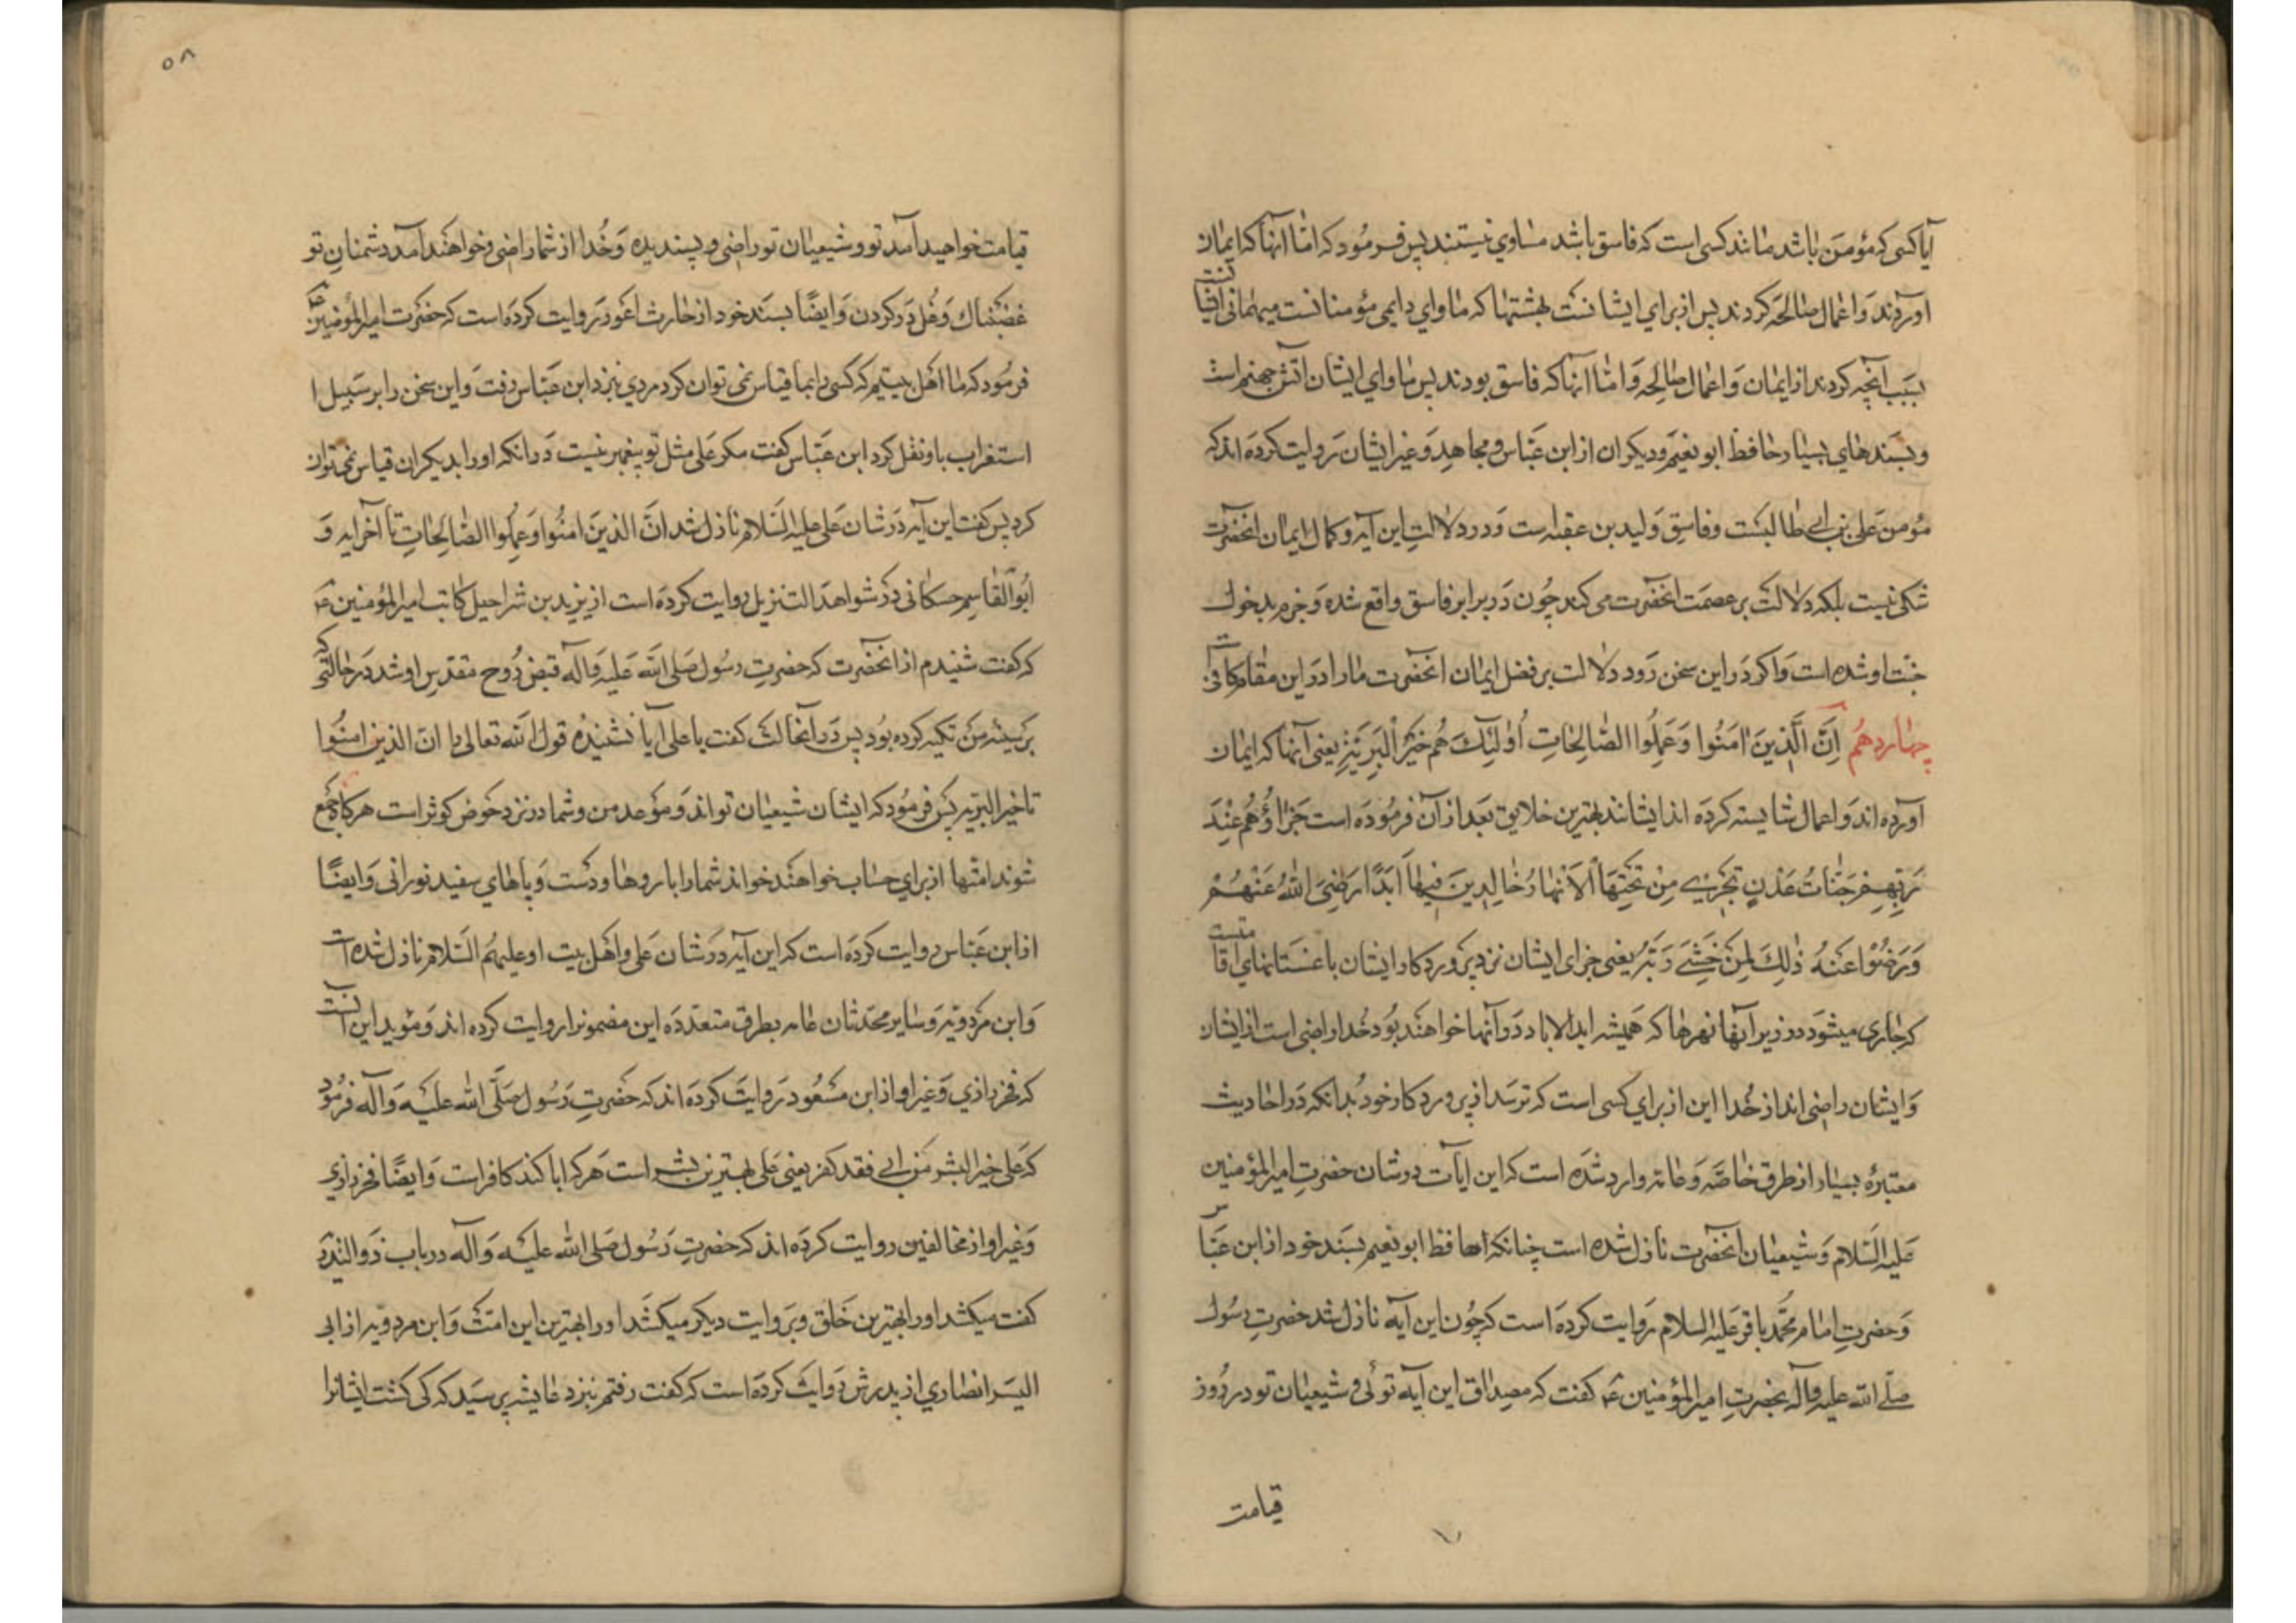 آیا کسی که مؤمن باشد مانند کسی است که فاسق باشد مساوی نیستند پس فرمود که اما آنها که ایمان
آوردند و اعمال صالحه کردند پس از برای ایشانست بهشتها که ماوای دایمی مؤمنانست میهمانی ایشانست
بسبب آنچه کردند از ایمان و اعمال صالحه و اما آنها که فاسق بودند پس ماوای ایشان آتش جهنم است
و بسندهای بسیار حافظ ابو نعیم و دیکران از ابن عباس و مجاهد و غیر ایشان روایت کرده اند که
مؤمن علی بن ابی طالبست و فاسق ولید بن عقبه است و در دلالت این آیه و کمال ایمان آنحضرت
شکی نیست بلکه دلالت بر عصمت آنحضرت می کند چون در برابر فاسق واقع شده و جزم بدخول
جنت او شده است و اکر در این سخن رود دلالت بر فضل ایمان آنحضرت ما را در این مقام کافیست
چهاردهم اِنَّ الَّذِینَ اٰمَنُوا وَعَمِلُوا الصَّالِحَاتِ اُولٰئِکَ هُم خَیْرُ الْبَرِیَّةِ یعنی آنها که ایمان
آورده اند و اعمال شایسته کرده اند ایشانند بهترین خلایق بعد از آن فرموده است جَزَاؤُهُم عِنْدَ
رَبِّهِم جَنَّاتُ عَدْنٍ تَجْرِی مِن تَحْتِهَا الاَنْهَارُ خَالِدِینَ فِیهَا اَبَدًا رَضِیَ اللّٰهُ عَنْهُمْ
وَرَضُوْا عَنْهُ ذٰلِکَ لِمَنْ خَشِیَ رَبَّهُ یعنی جزای ایشان نزد پرورد کار ایشان باغستانهای اقامتست
که جاری میشود در زیر آنها نهرها که همیشه ابد الاباد در آنها خواهند بود خدا راضی است از ایشان
و ایشان راضی اند از خدا این از برای کسی است که ترسد از پرورد کار خود بدانکه در احادیث
معتبرهٔ بسیار از طرق خاصه و عامه وارد شده است که این ایات در شان حضرت امیر المؤمنین
علیه السلام و شیعیان آنحضرت نازل شده است چنانکه حافظ ابو نعیم بسند خود از ابن عباس
و حضرت امام محمد باقر علیه السلام روایت کرده است که چون این آیه نازل شد حضرت رسول
صلی الله علیه و آله بحضرت امیر المؤمنین ع کفت که مصداق این آیه توئی و شیعیان تو در روز
قیامت
۵۸
قیامت خواهید آمد تو و شیعیان تو راضی و پسندیده و خدا از شما راضی و خواهند آمد دشمنان تو
غضبناک و غل در کردن و ایضًا بسند خود از حارث اعور روایت کرده است که حضرت امیر المؤمنین ع
فرمود که ما اهل بیتیم که کسی را بما قیاس نمی توان کرد مردی بنزد ابن عباس رفت و این سخن را بر سبیل ا
استغراب باو نقل کرد ابن عباس کفت مکر علی مثل تو پیغمبر نیست در آنکه او را بدیکران قیاس نمی توان
کرد پس کفت این آیه در شان علی علیه السلام نازل شد ان الذین امنوا و عملوا الصالحات تا آخر ایه و
ابو القاسم حسکانی در شواهد التنزیل روایت کرده است از یزید بن شراحیل کاتب امیر المؤمنین ع
که کفت شنیدم از آنحضرت که حضرت رسول صلی الله علیه و آله قبض روح مقدس او شد در حالتی که
بر سینه من تکیه کرده بود پس در آنحالت کفت یا علی آیا نشنیدهٔ قول الله تعالی را ان الذین امنوا
تا خیر البریه پس فرمود که ایشان شیعیان تواند و موعد من و شما در نزد حوض کوثر است هرکاه جمع
شوند امتها از برای حساب خواهند خواند شما را با روها و دست و پاهای سفید نورانی و ایضًا
از ابن عباس روایت کرده است که این آیه در شان علی و اهل بیت او علیهم السلام نازل شده است
و ابن مردویه و سایر محدثان عامه بطرق متعدده این مضمون را روایت کرده اند و مؤید این است آنست
که فخر رازی و غیر او از ابن مسعود روایت کرده اند که حضرت رسول صلی الله علیه و آله فرمود
که علی خیر البشر من ابی فقد کفر یعنی علی بهترین بشر است هر که ابا کند کافر است و ایضًا فخر رازی
و غیر او از مخالفین روایت کرده اند که حضرت رسول صلی الله علیه و آله در باب ذو الثدیه
کفت میکشد او را بهترین خلق و بروایت دیکر میکشد او را بهترین این امت و ابن مردویه از ابی
الیسر انصاری از پدرش روایت کرده است که کفت رفتم بنزد عایشه پرسید که کی کشت ایشانرا